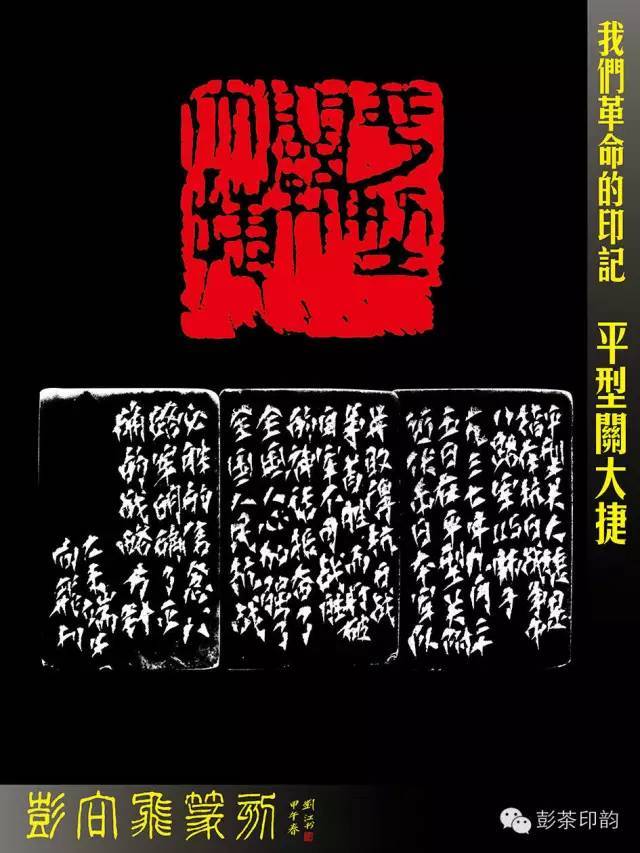 我們革命的印記 平型關大捷
平型
關
大捷
平型关大捷是
指在抗日战争中
八路军115师于
一九三七年九月二十
五日在平型关附
近伏击日本军队
并取得抗日战
争首胜而打破
日军不可战胜
的神话振奋了
全国人心加强了
全国人民抗战
必胜的信念八
路军明确了正
确的战略方针
向飛刊
彭向飛篆刻
劉江书
甲午春
彭茶印韵